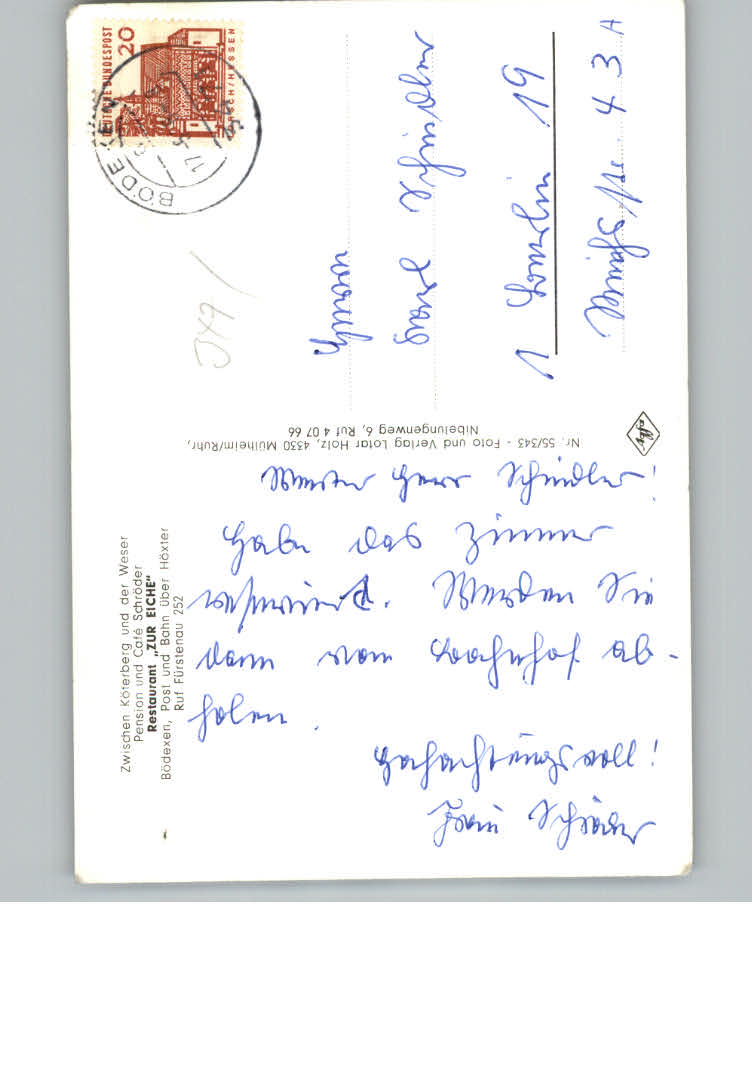 Zwischen Köterberg und der Weser
Pension und Café Schröder
Restaurant „ZUR EICHE"
Bödexen, Post und Bahn über Höxter
Ruf Fürstenau 252
Werter Herr Schindler!
Habe das Zimmer
reserviert. Werden Sie
dann vom Bahnhof ab-
holen.
Hochachtungsvoll!
Frau Schröder
Nr. 55/343 - Foto und Verlag Lotar Holz, 4330 Mülheim/Ruhr,
Nibelungenweg 6, Ruf 4 07 66
DEUTSCHE BUNDESPOST
20
LORSCH/HESSEN
BÖDEXEN
17
Herrn
Schindler
1 Berlin 19
43 A